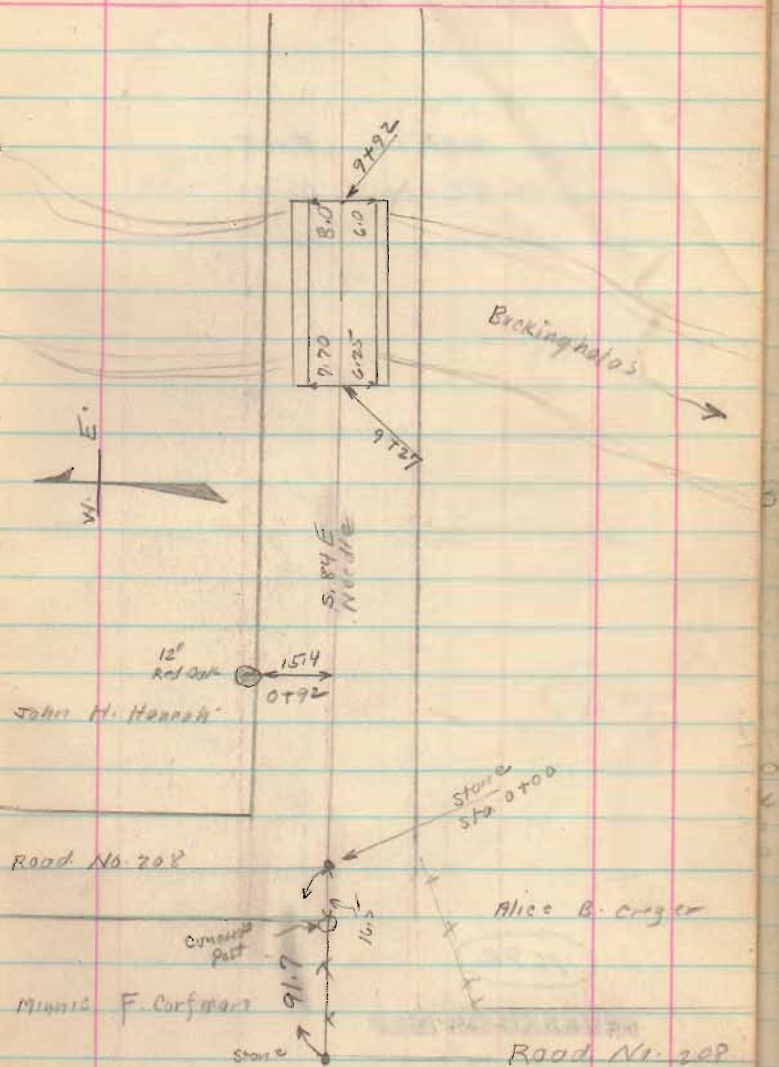 9+92
8.0
6.0
7.70
6.25
Buckingholas
9+27
E.
W.
S. 84 E
Needle
12"
Red Oak
15.4
0+92
John H. Hannah
Stone
Sta. 0+00
Road No. 208
Concrete
Post
16.5
Alice B. Creger
91.7
Minnie F. Corfman
Stone
Road No. 208